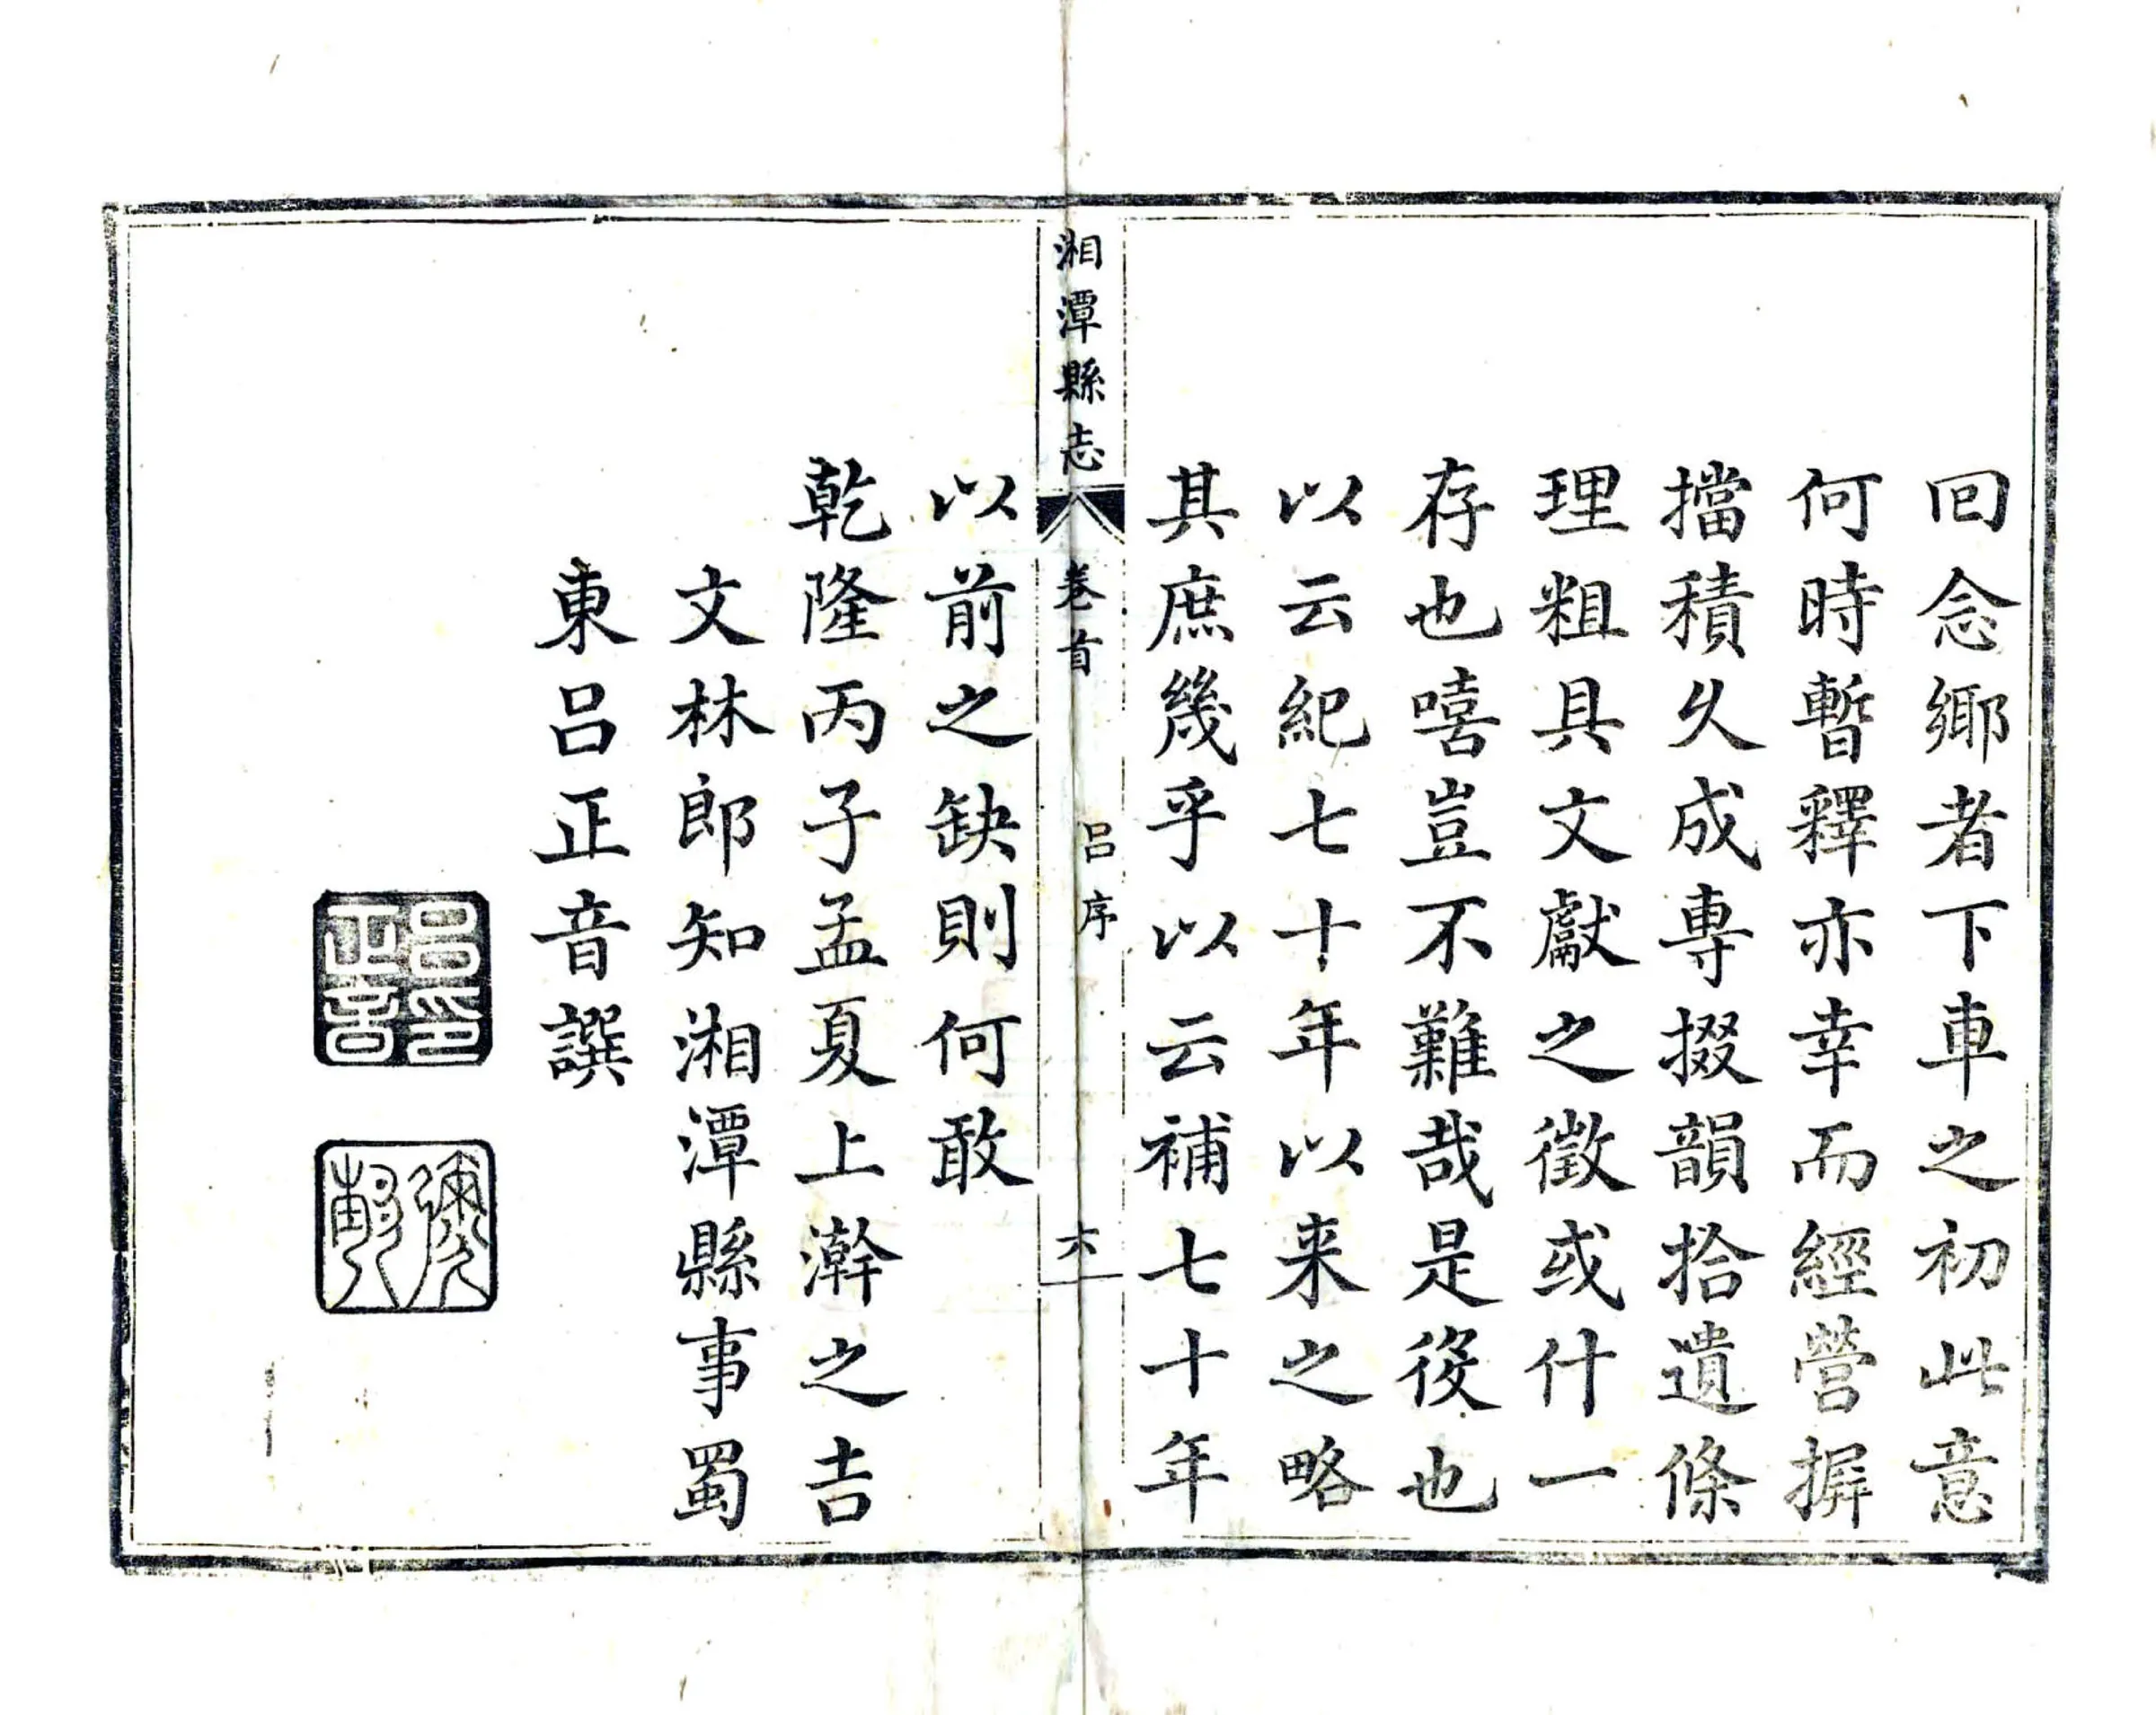 回念鄉者下車之初此意
何時暫釋亦幸而經營摒
擋積久成專掇韻拾遺條
理粗具文獻之徵或什一
存也嘻豈不難哉是役也
以云紀七十年以来之略
其庶幾乎以云補七十年
湘潭縣志
卷首
呂序
六
以前之缺則何敢
乾隆丙子孟夏上澣之吉
文林郎知湘潭縣事蜀
東呂正音譔
呂印
正音